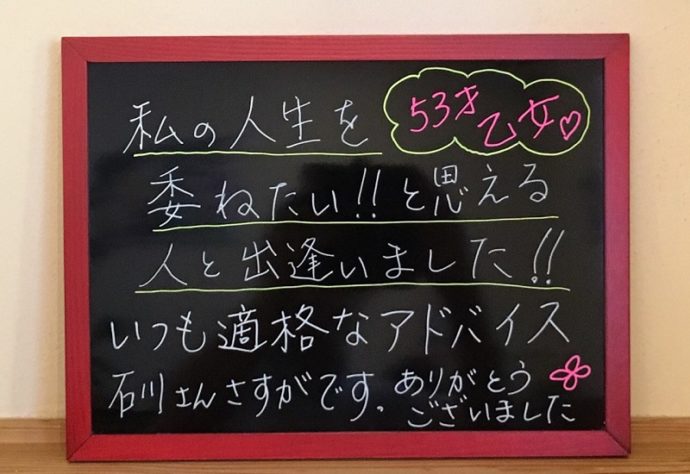 私の人生を
53才
乙女♡
委ねたい!!と思える
人と出逢いました!!
いつも適格なアドバイス
石川さんさすがです。ありがとう
ございました